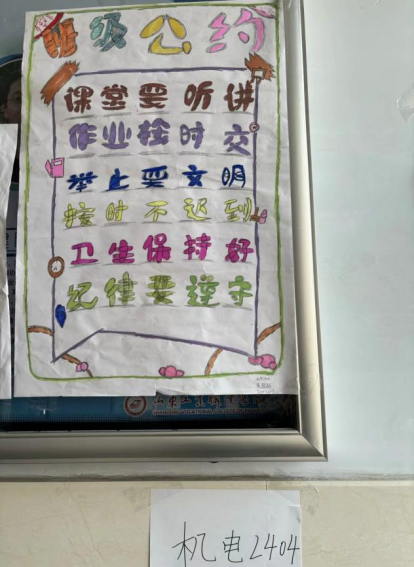 班级公约
课堂要听讲
作业按时交
举止要文明
按时不迟到
卫生保持好
纪律要遵守
机电2404